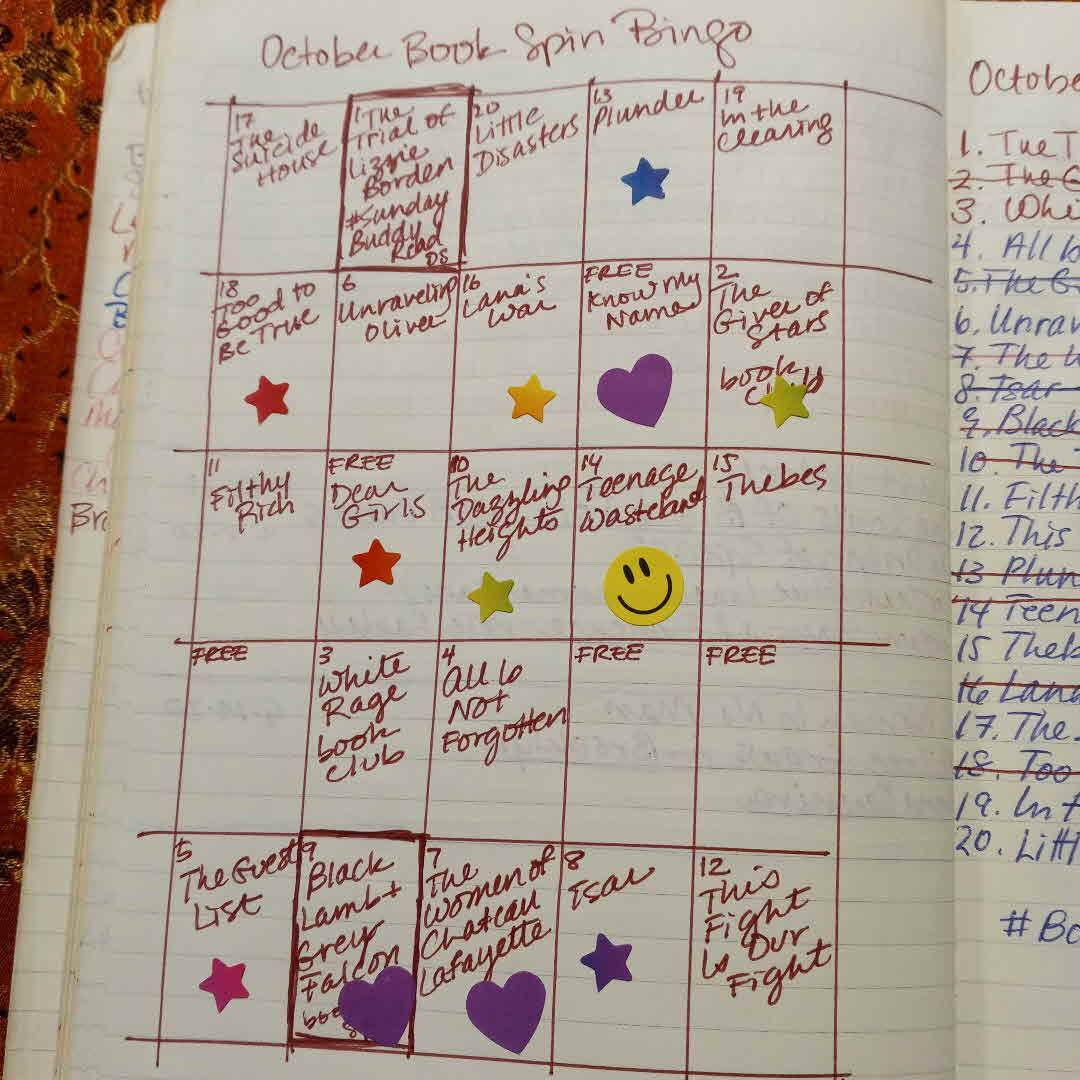 October Book Spin Bingo
17
The
Suicide
House
1 The
Trial of
Lizzie
Borden
#Sunday
Buddy
Read
DS
20
Little
Disasters
13
Plunder
19
In the
Clearing
18
Too
Good to
Be True
6
Unraveling
Oliver
16
Lana's
War
FREE
Know my
Name
2
The
Giver of
Stars
book
club
11
Filthy
Rich
FREE
Dear
Girls
10
The
Dazzling
Heights
14
Teenage
Wasteland
15
Thebes
FREE
3
White
Rage
book
club
4
All is
Not
Forgotten
FREE
FREE
5
The Guest
List
9
Black
Lamb +
Grey
Falcon
7
The
Women of
Chateau
Lafayette
8
Tsar
12
This
Fight
Is Our
Fight
October
1. The T
2. The G
3. Whi
4. All b
5. The G
6. Unrav
7. The W
8. Tsar
9. Black
10. The
11. Filth
12. This
13 Plun
14 Teen
15 Theb
16 Lana
17. The
18. Too
19. In t
20. Litt
#Bo